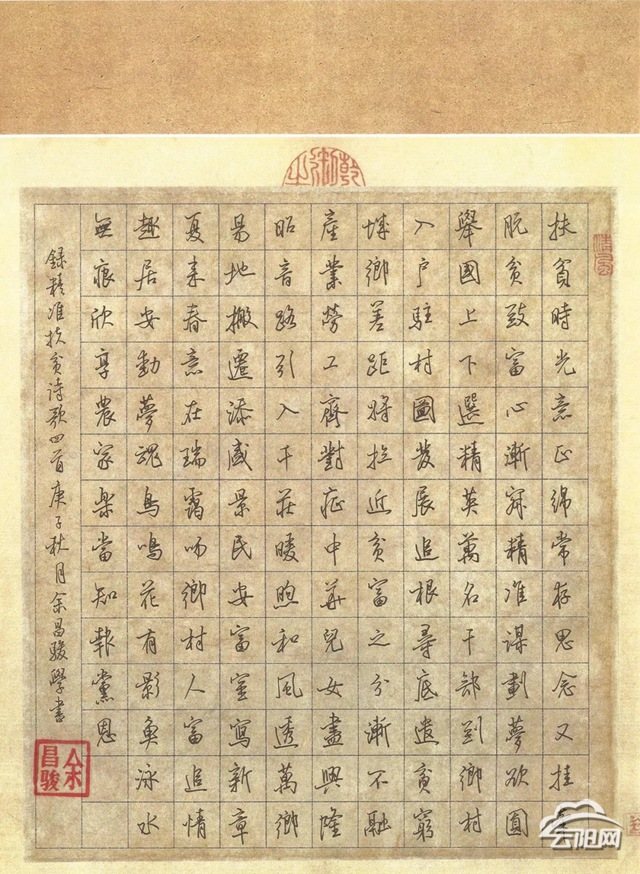 扶貧時光意正綿常存思念又挂
脫貧致富心漸寐精准謀劃夢欲圓
舉國上下選精英萬名干部到鄉村
入户駐村圖發展追根尋底遣貧窮
城鄉差距將拉近貧富之分漸不融
產業勞工齊對症中華兒女盡興隆
昭音路引入干莊暖煦和風透萬鄉
易地搬遷添盛景民安富室寫新章
夏來春意在瑞靄吻鄉村人富追情
趣居安動夢魂鳥鳴花有影魚泳水
無痕欣享農家樂當知報黨恩
録精准扶贫诗歌四首庚子秋月余昌駿學書
余昌駿
云阳网